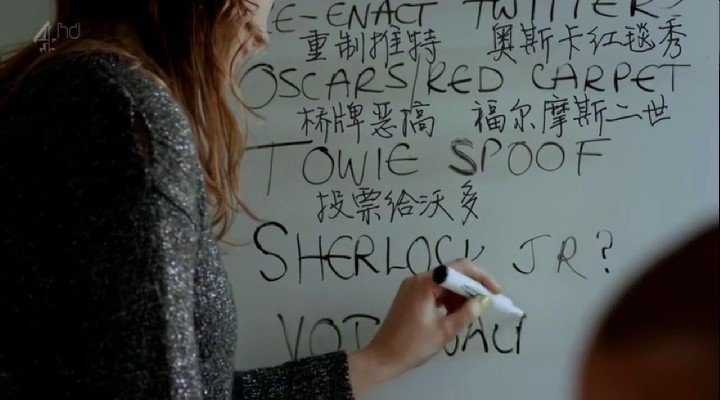 4hd
RE-ENACT TWITTER
重制推特 奥斯卡红毯秀
OSCARS/RED CARPET
桥牌恶搞 福尔摩斯二世
TOWIE SPOOF
投票给沃多
SHERLOCK JR?